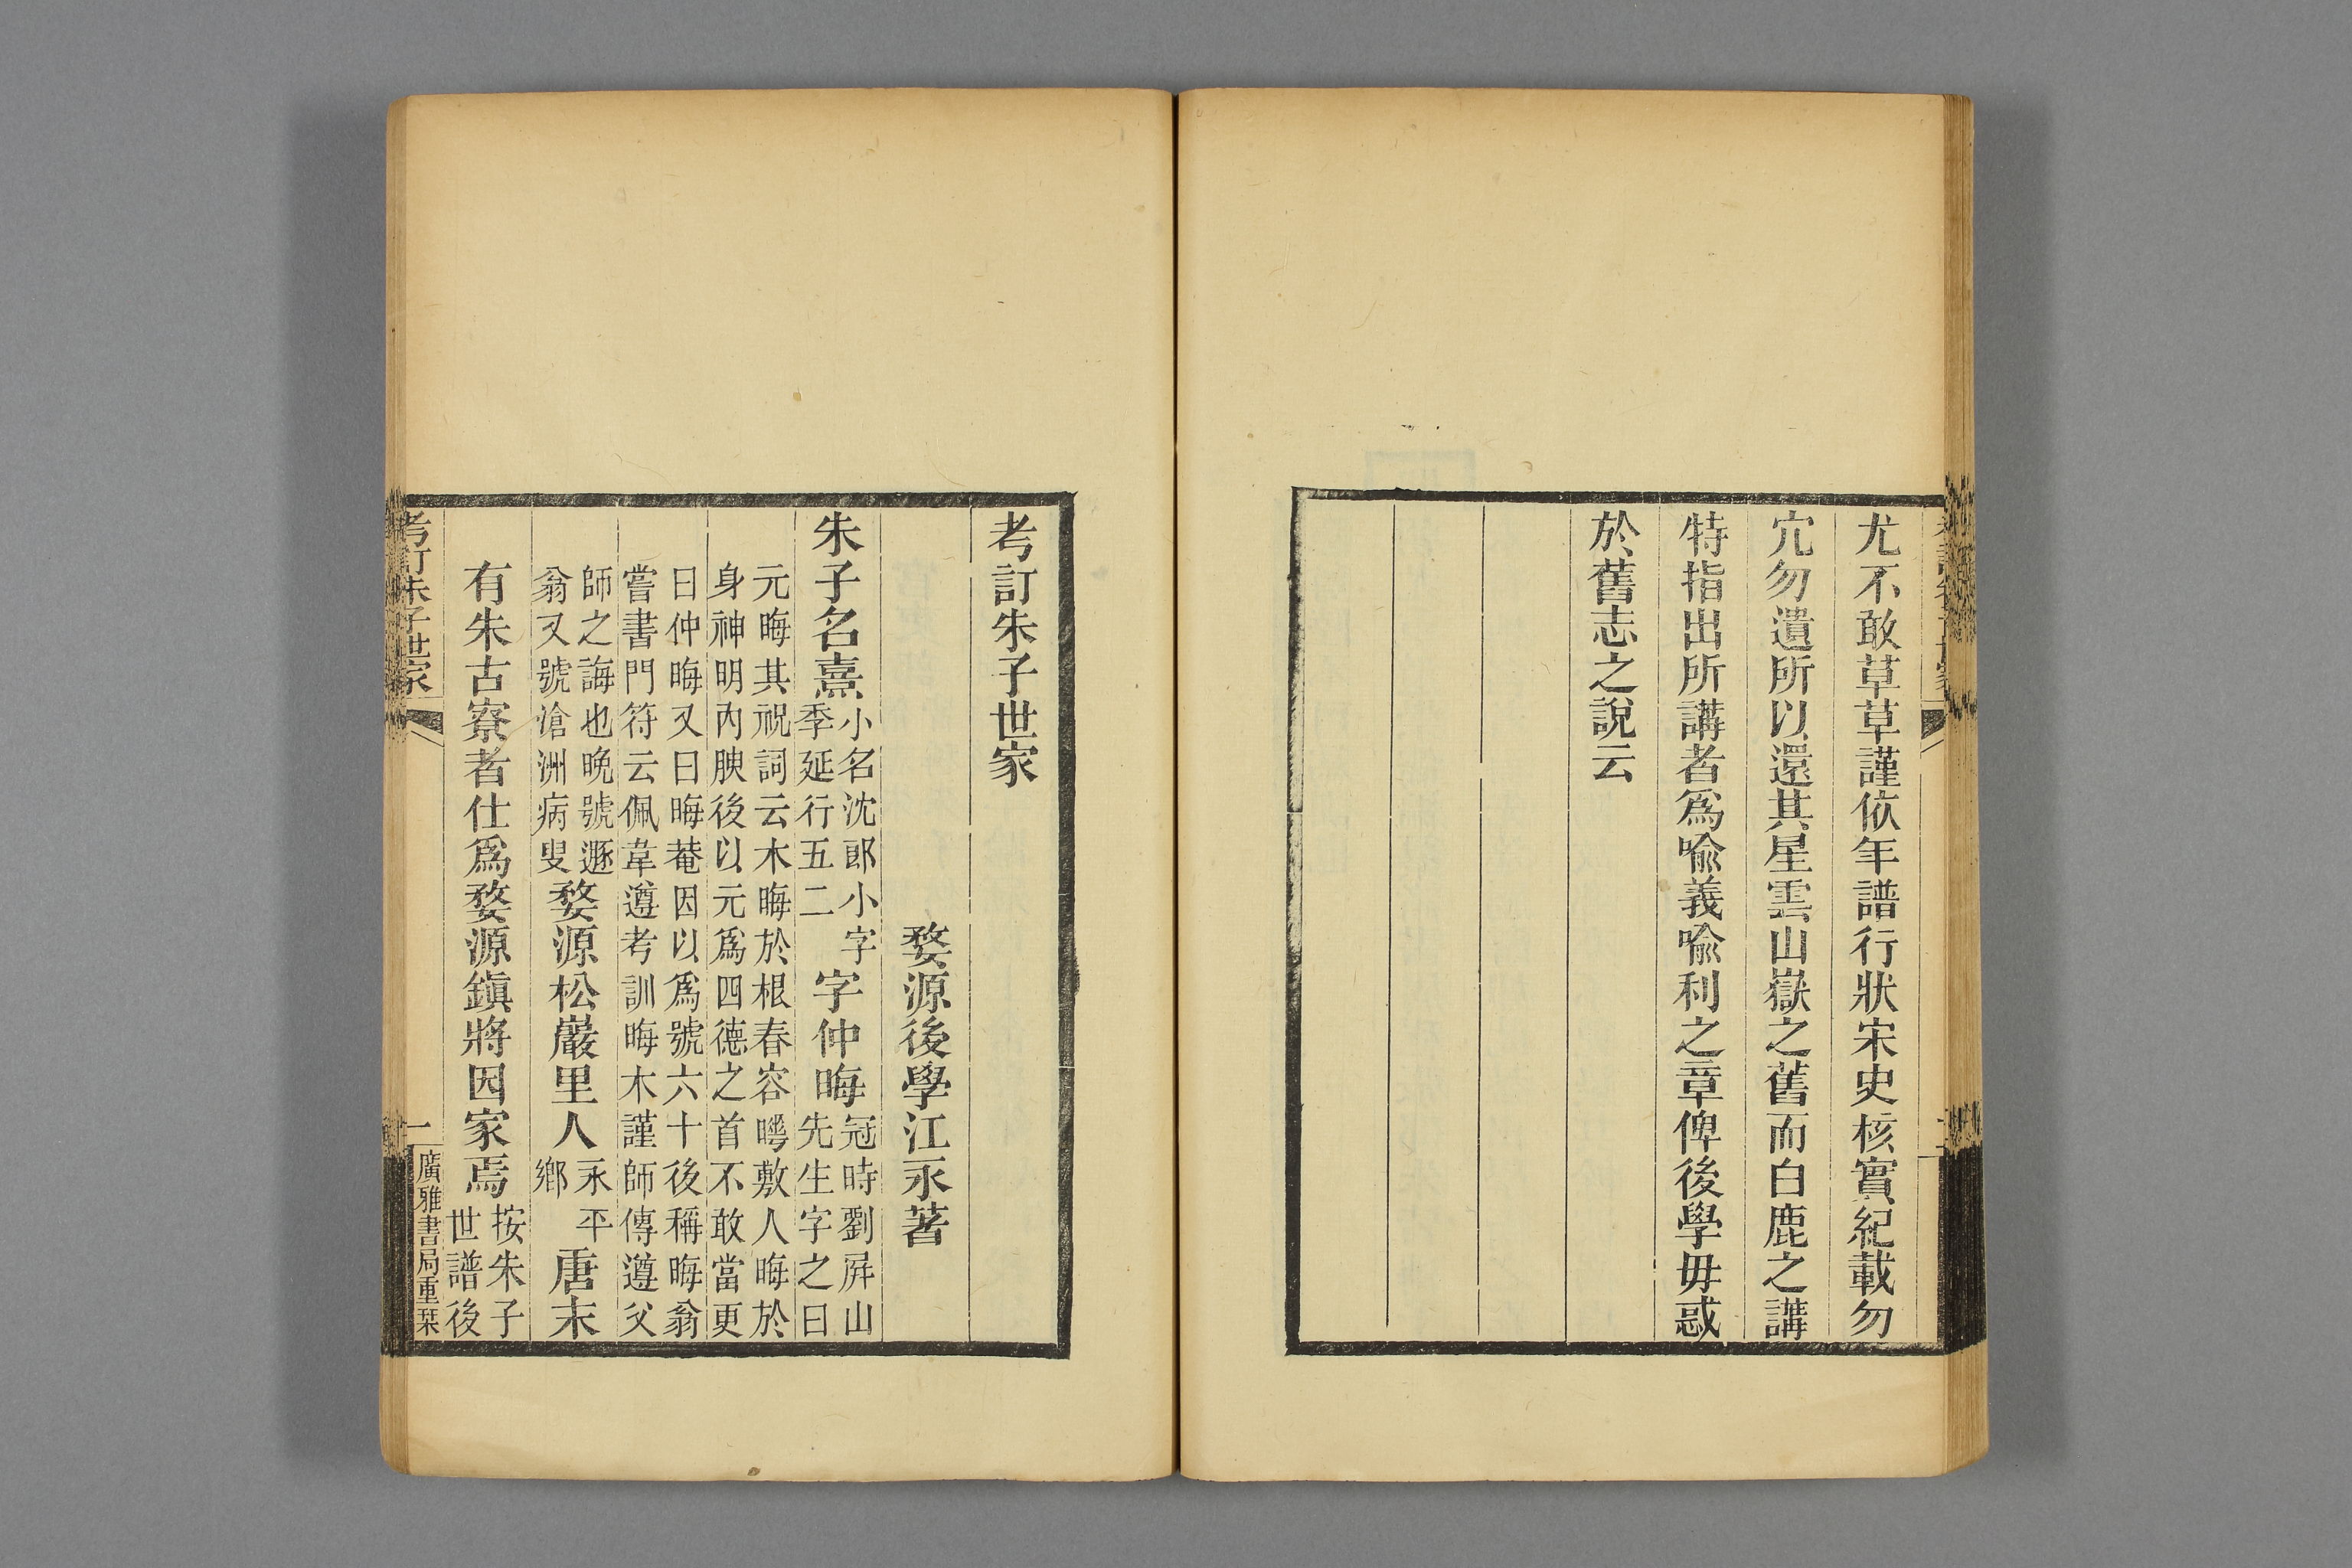 尤不敢草草謹依年譜行狀宋史核實紀載勿
宂勿遺所以還其星雲山嶽之舊而白鹿之講
特指出所講者爲喻義喻利之章俾後學毋惑
於舊志之說云
考訂朱子世家
婺源後學江永著
朱子名熹小名沈郎小字季延行五二字仲晦冠時劉屛山先生字之曰
元晦其祝詞云木晦於根春容曄敷人晦於
身神明內腴後以元爲四德之首不敢當更
曰仲晦又曰晦菴因以爲號六十後稱晦翁
嘗書門符云佩韋遵考訓晦木謹師傳遵父
師之誨也晩號遯翁又號滄洲病叟婺源松巖里人永平鄉唐末
有朱古寮者仕爲婺源鎭將因家焉按朱子世譜後
考訂朱子世家
一
廣雅書局重栞